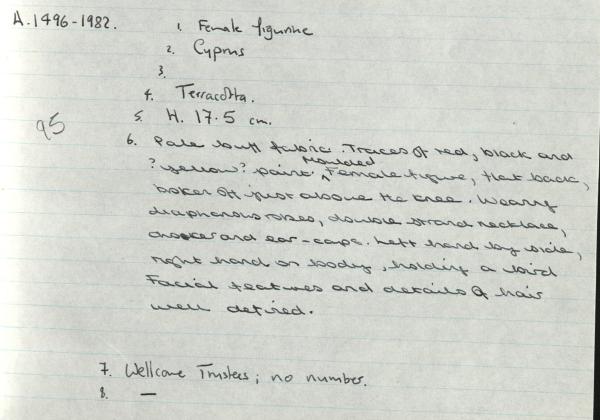 A.1496-1982.
1. Female figurine
2. Cyprus
3.
4. Terracotta.
5. H. 17.5 cm.
95
6. Pale buff fabric. Traces of red, black and
? yellow? paint. Moulded Female figure, flat back,
broken off just above the knee. Wearing
diaphanous robes, double strand necklace,
choker and ear-caps. Left hand by side,
right hand on body, holding a bird
Facial features and details of hair
well defined.
7. Wellcome Trustees; no number.
8. —